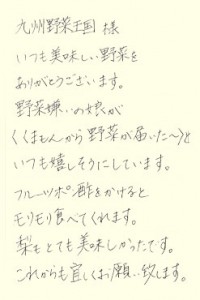 九州野菜王国 様
いつも美味しい野菜を
ありがとうございます。
野菜嫌いの娘が
くくまもんから野菜が届いた〜〉と
いつも嬉しそうにしています。
フルーツポン酢をかけると
モリモリ食べてくれます。
梨もとても美味しかったです。
これからも宜しくお願い致します。